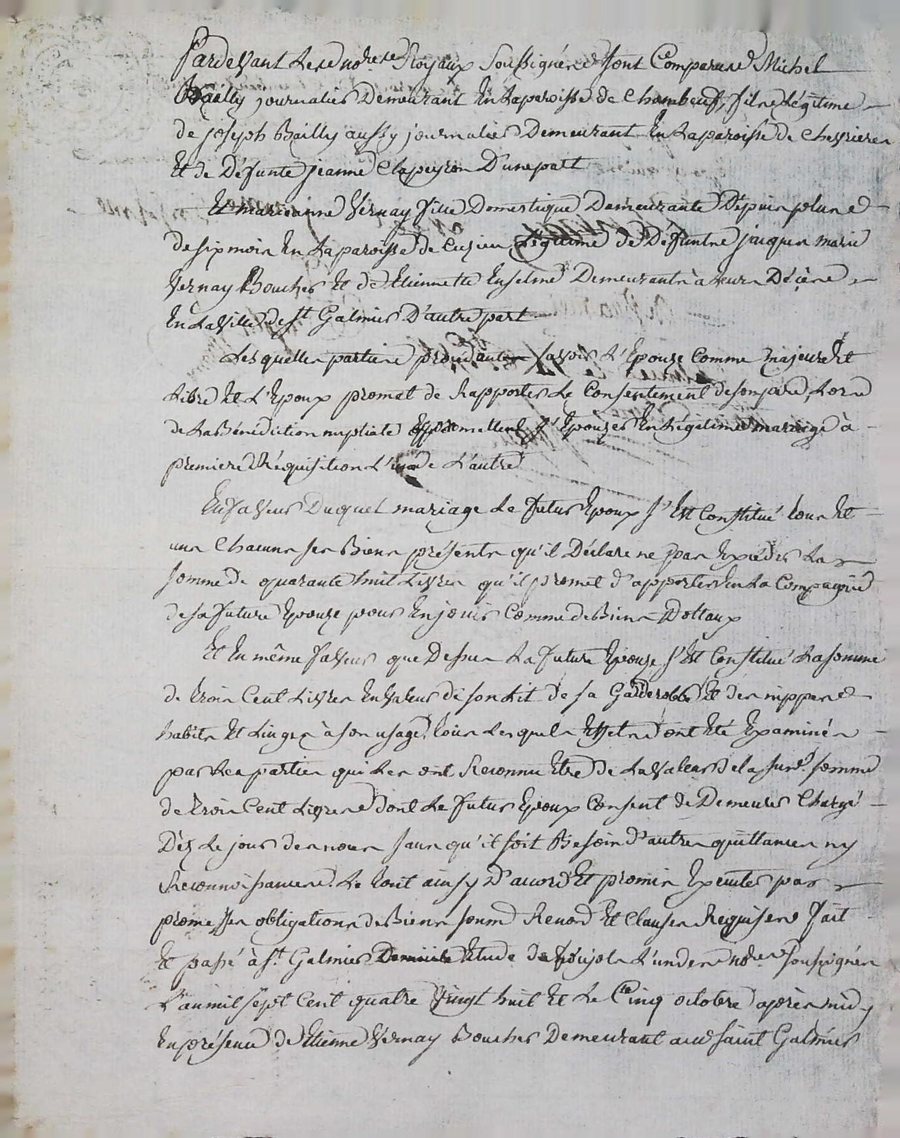 Pardevant Les no.res Royaux Soussignés sont Comparus Michel
Bailly journalier Demeurant En La paroisse de Chambeuf, fils Légitime
de joseph Bailly aussy journalier Demeurant En La paroisse de Chevrieres
Et de Défunte jeanne Clapeyron D'une part
Et marianne Vernay fille Domestique Demeurante Depuis plus
de six mois En La paroisse de Cuzieu Légitime de Defunts jacques marie
Vernay Boucher Et de Etiennette Enselme Demeurants à Leurs Décès
En La Ville de St Galmier D'autre part
Lesquelles parties procédantes savoir L'Epouze Comme majeure Et
Libre Et L'Epoux promet de Rapporter Le Consentement de son père Lors
de La Bénédiction nuptiale promettent s'Epouzer En Légitime mariage à
premiere Réquisition L'un de L'autre
En faveur Duquel mariage Le futur Epoux s'Est Constitué tous Et
uns Chacuns ses Biens présents qu'il Déclare ne pas Excéder La
somme de quarante huit Livres qu'il promet d'apporter En La Compagnie
de sa future Epouze pour En jouir Comme de Biens Dottaux
Et En même faveur que Dessus La future Epouze s'Est Constitué La somme
de trois Cent Livres En valeur de son Lit de sa Garderobbe Et des nippes
habits Et Linges à son usage, tous Lesquels Effets ont Eté Examinés
par Les parties qui Les ont Reconnu Etre de La valeur de la susd. somme
de trois Cent Livres dont Le futur Epoux Consent de Demeurer Chargé
Dès Le jour des noces sans qu'il soit Besoin d'autres quittances ny
Reconnoissances. Le tout ainsy D'accord Et promis Exécuter par
promesses obligations de Biens soum.d Renond Et Clauses Requises fait
Et passé à St. Galmier Etude de Poujol L'un des no.res soussignés
L'an mil sept Cent quatre Vingt huit Et Le Cinq octobre après midy
En présence de Etienne Vernay Boucher Demeurant aud saint Galmier